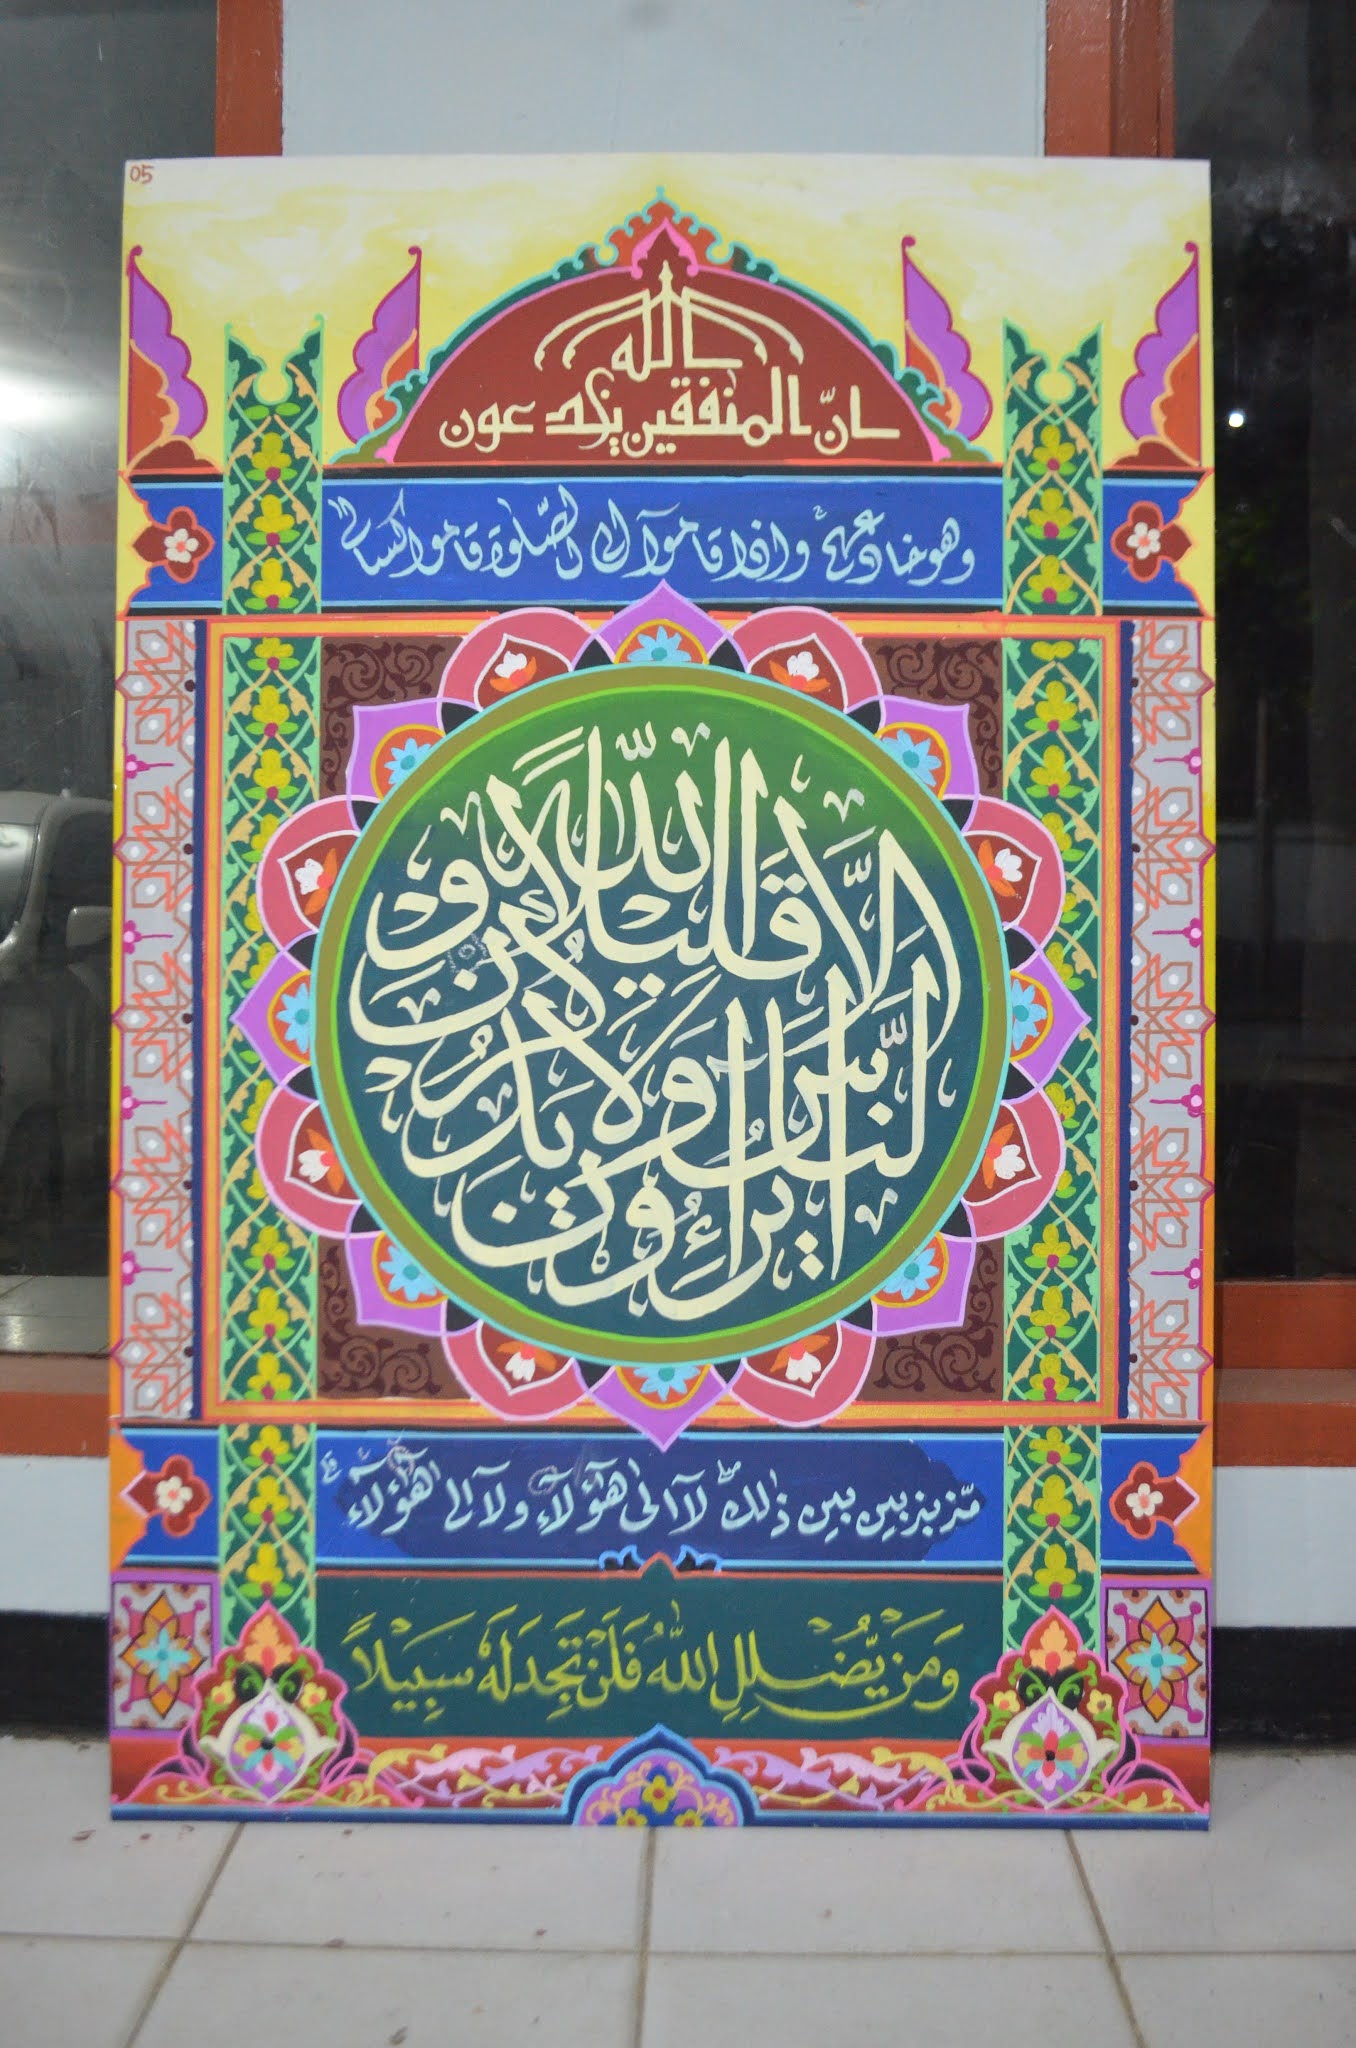 05
انّ المنفقين يخدعون الله
وهو خادعهم واذا قاموآ الى الصّلوة قاموا كسالى
يُرَاءُوْنَ النَّاسَ وَلَا يَذْكُرُوْنَ اللّٰهَ اِلَّا قَلِيْلًا
مّذبذبين بين ذٰلك لآ الٰى هٰٓؤلآء ولآ الٰى هٰٓؤلآء
وَمَنْ يُّضْلِلِ اللّٰهُ فَلَنْ تَجِدَ لَهٗ سَبِيْلًا